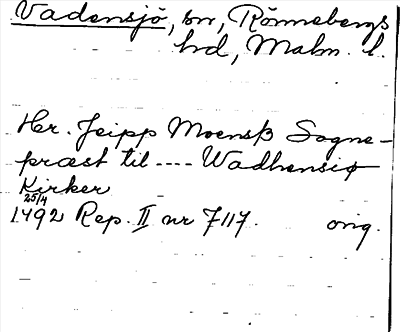 Vadensjö, sn, Rönnebergs
hd, Malm. l.
Hr. Jeipp Moensß Sogne-
præst til ---- Wadhensiø
Kirker
25/4
1492 Rep. II nr 7117. orig.